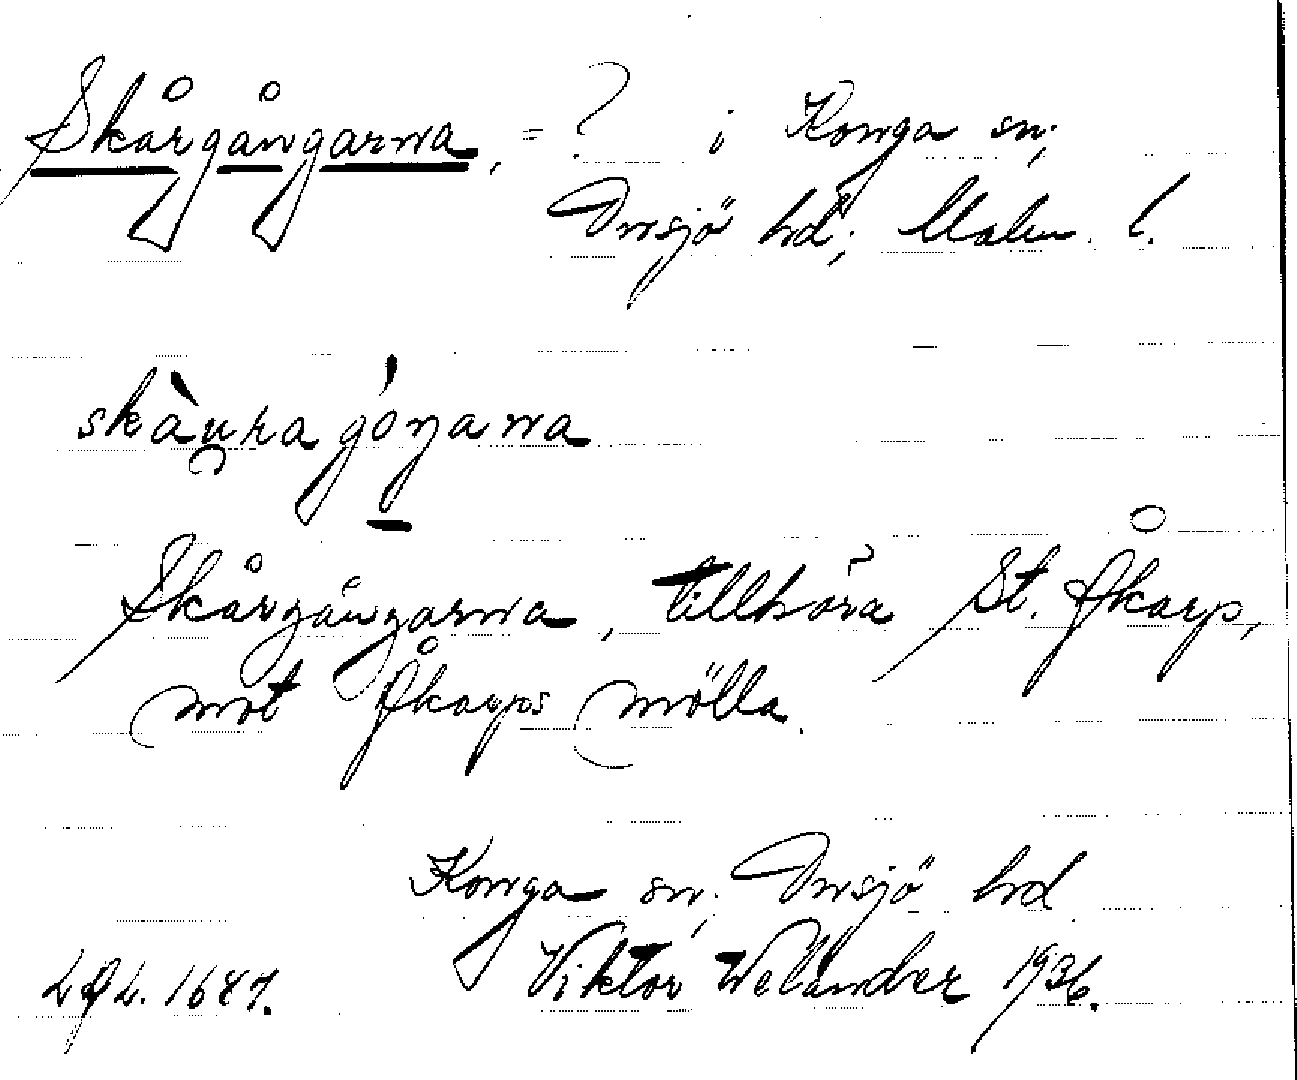 Skårgångarna, = ? i Konga sn;
Onsjö hd; Malm. l.
skàu̯ragóŋarna
Skårgångarna, tillhöra St. Åkarp,
mot Åkarps mölla.
Konga sn; Onsjö hd
LAL. 1687. Viktor Welander 1936.